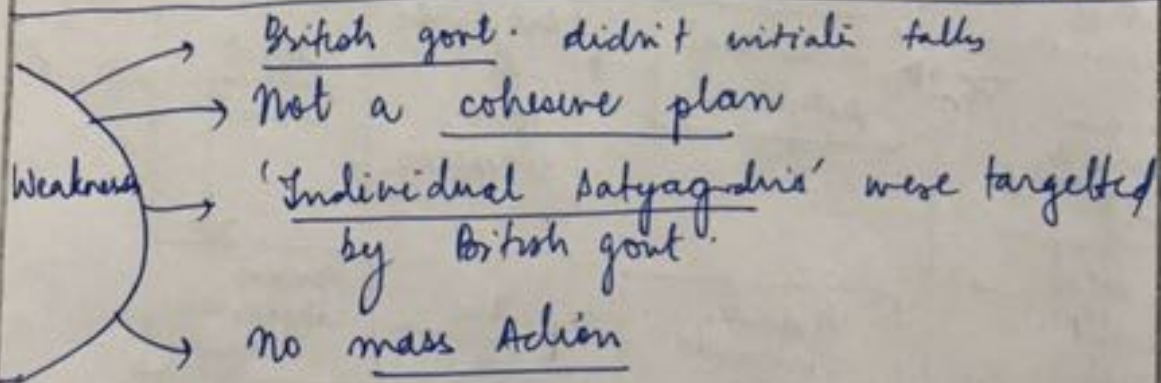 British govt. didn't initiate talks
Not a cohesive plan
Weakness
'Individual satyagrahis' were targetted
by British govt.
no mass Action